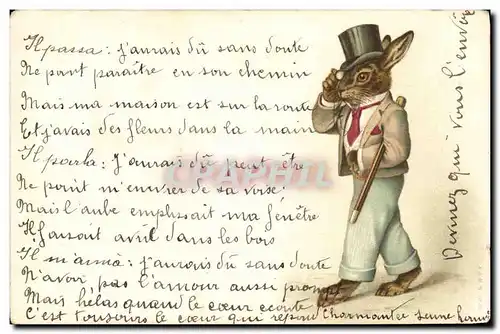 Il passa : j'aurais dû sans doute
Ne point paraître en son chemin
Mais ma maison est sur la route
Et j'avais des fleurs dans la main
Il parla : j'aurais dû peut être
Ne point m'enivrer de sa voix.
Mais l'aube emplissait ma fenêtre
Il faisait avril dans les bois
Il m'aima : j'aurais dû sans doute
N'avoir pas l'amour aussi prompt
Mais hélas quand le cœur écoute
C'est toujours le cœur qui répond
Charmante jeune
Devinez qui vous l'envoie
CPHRAP.COM